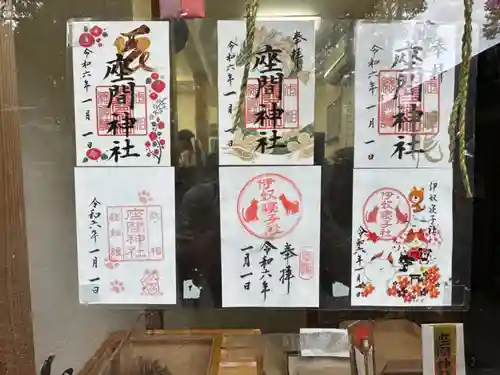 奉拝
座間神社
令和六年一月一日
奉拝
座間神社
令和六年一月一日
奉拝
座間神社
令和六年一月一日
座間神社
令和六年一月一日
伊奴寝子社
奉拝
令和六年
一月一日
伊奴寝子社
伊奴寝子社
令和六年一月一日
座間神社